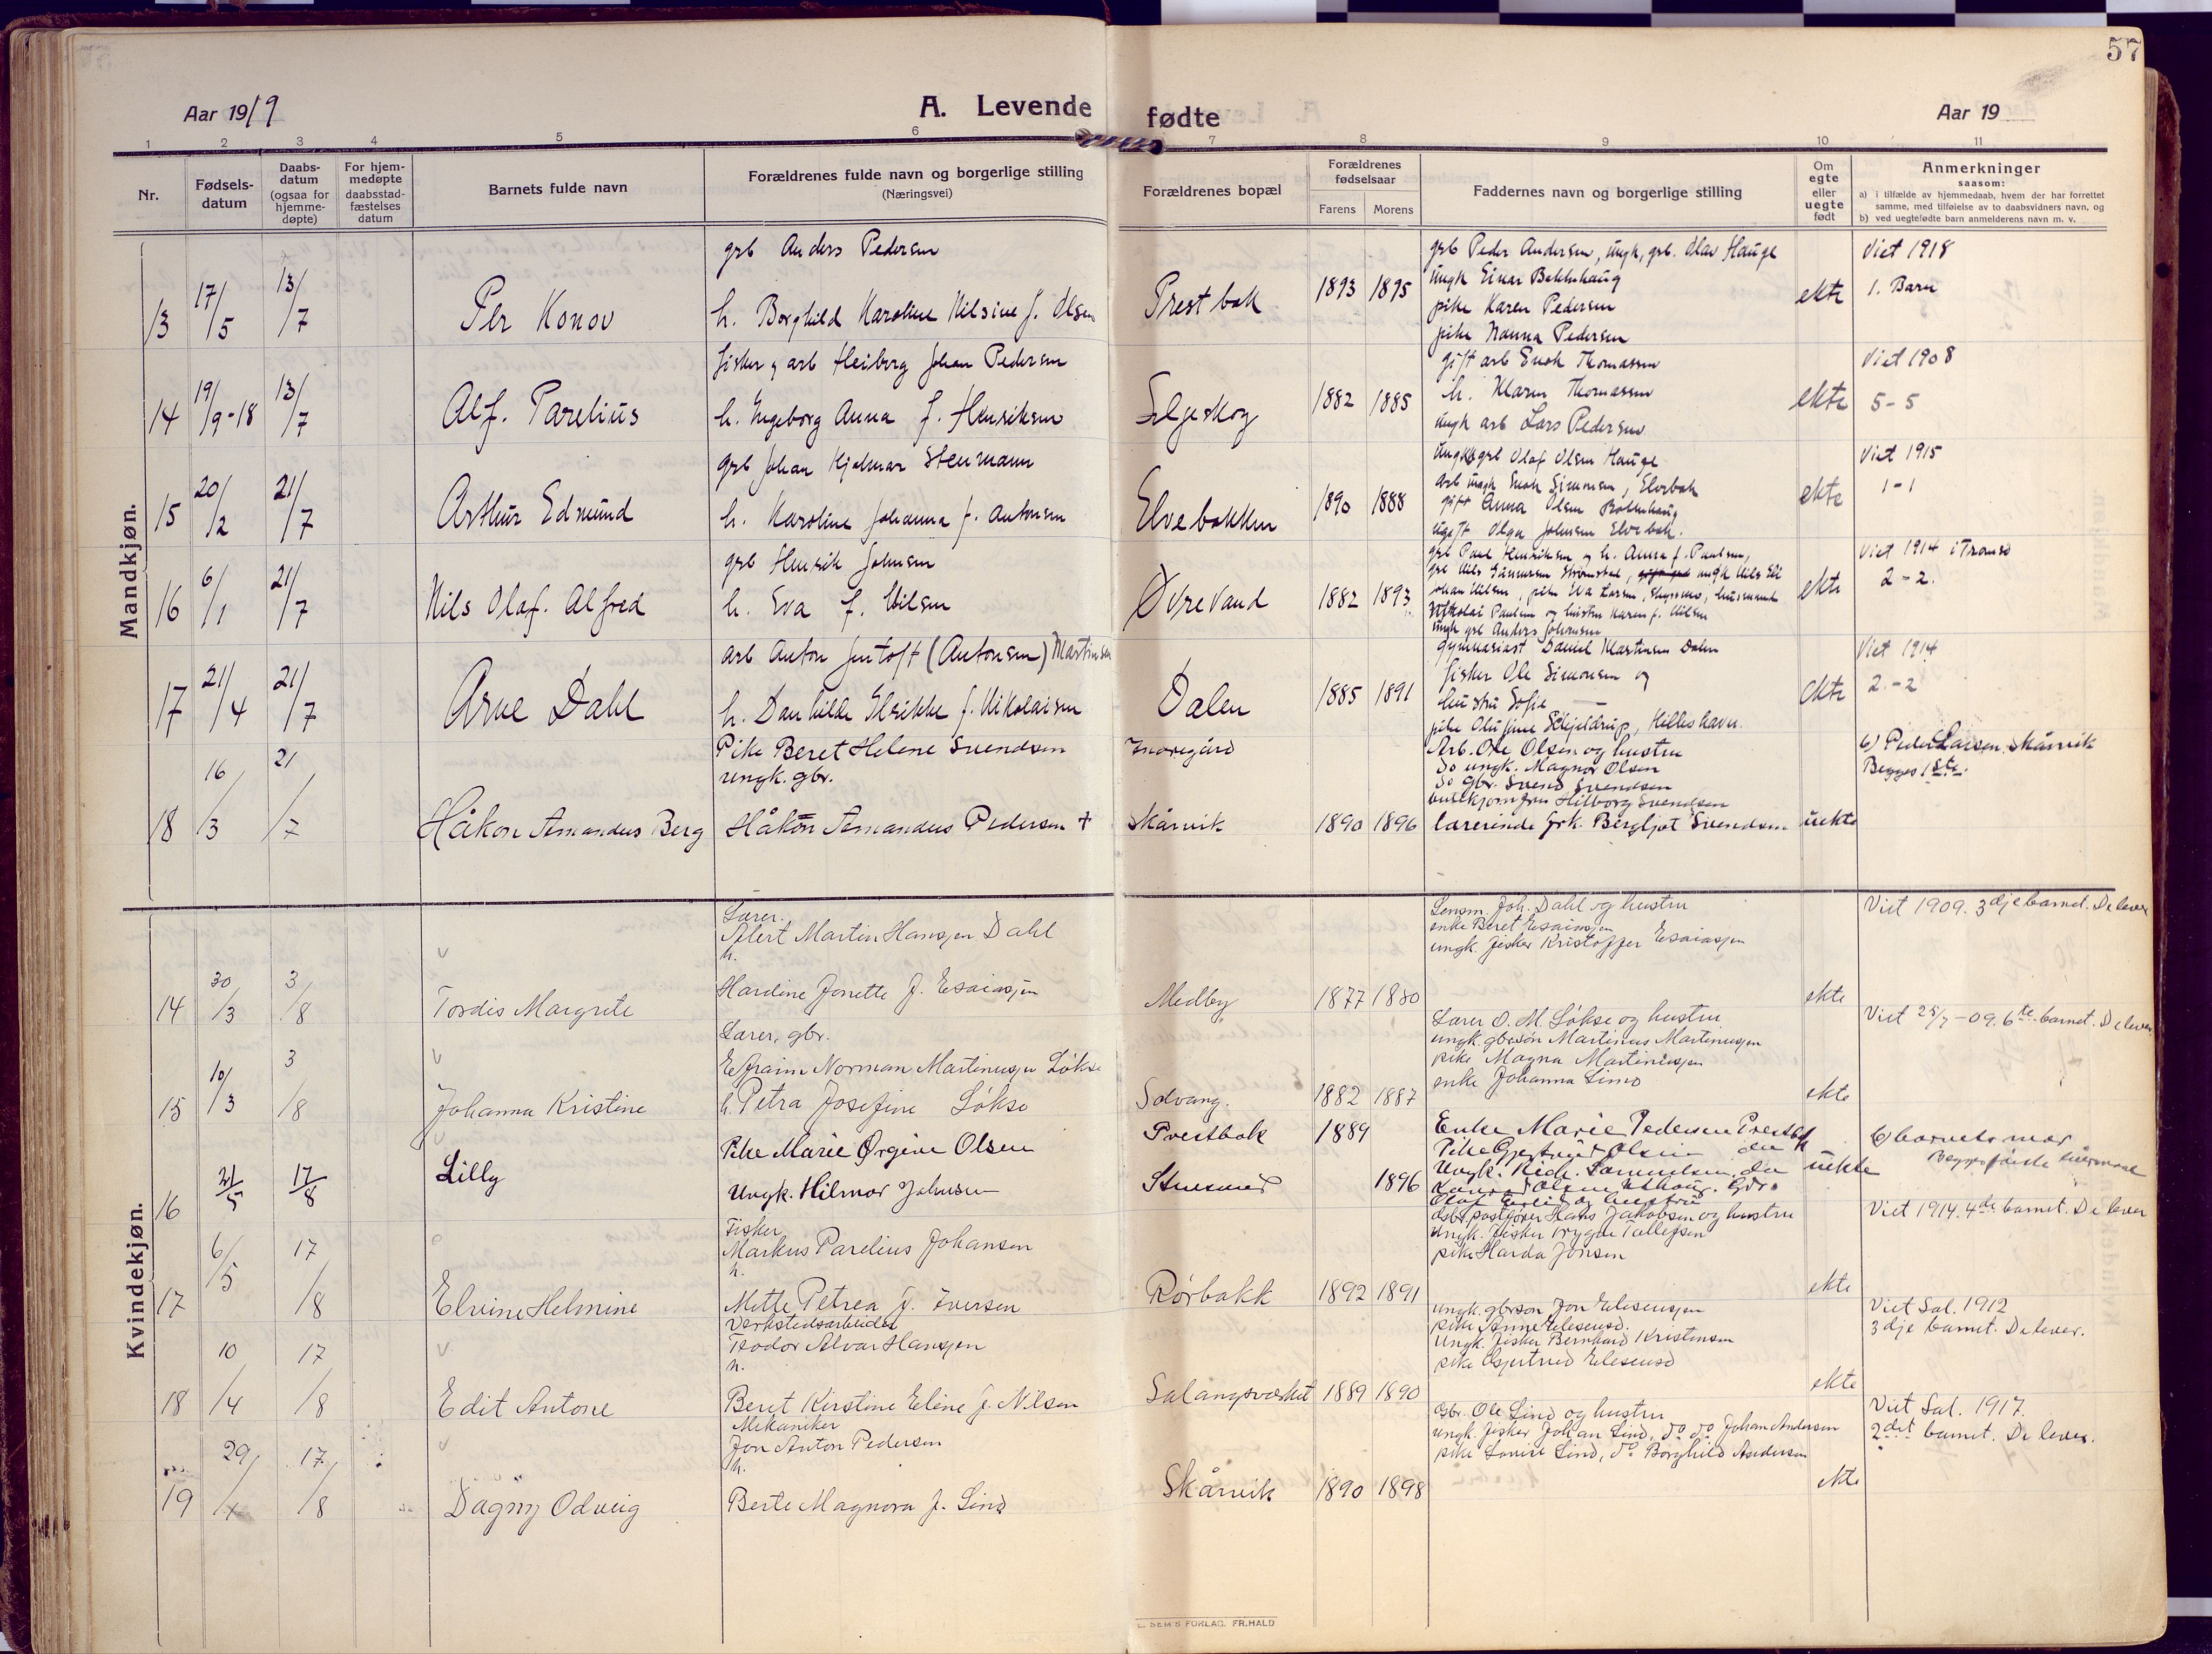 57
Aar 1919
A. Levende fødte
Aar 19
1 2 3 4 5 6 7 8 9 10 11
Nr.
Fødsels-datum
Daabs-datum (ogsaa for hjemme-døpte)
For hjem-medøpte daabsstad-fæstelses datum
Barnets fulde navn
Forældrenes fulde navn og borgerlige stilling (Næringsvei)
Forældrenes bopæl
Forældrenes fødselsaar
Farens Morens
Faddernes navn og borgerlige stilling
Om egte eller uegte født
Anmerkninger
saasom:
a) i tilfælde av hjemmedaab, hvem der har forrettet samme, med tilføielse av to daabsvidners navn, og
b) ved uegtefødte barn anmelderens navn m. v.
Mandkjøn.
13 17/5 13/7 Per Konov
grb Anders Pedersen
h. Borghild Karoline Nilsine f. Olsen
Prestbak 1893 1895
grb Peder Andersen, ungk, grb. Olav Hauge
ungk Einar Bakkehaug
pike Karen Pedersen
pike Nanna Pedersen
ekte
Viet 1918
1. Barn
14 19/9-18 13/7 Alf. Parelius
fisker og arb Heiberg Johan Pedersen
h. Ingeborg Anna f. Henriksen
Selgeskog 1882 1885
gift arb Enok Thomassen
h. Maren Thomassen
ungk arb Lars Pedersen
ekte
Viet 1908
5-5
15 20/2 21/7 Arthur Edmund
grb Johan Hjalmar Stenmann
h. Karoline Johanna f. Antonsen
Elvebakken 1890 1888
ungk grb Olaf Olsen Hauge
arb ungk Enok Simonsen, Elvebak
gift Anna Olsen Bakkehaug
ugift Olga Johnsen Elvebak.
ekte
Viet 1915
1-1
16 6/1 21/7 Nils Olaf. Alfred
grb Henrik Johnsen
h. Eva f. Nilsen
Øvrevand 1882 1893
grb Paul Henriksen og h. Anna f. Paulsen,
grb Nils Gunnersen Strømstad, ungk Nils Eli
Johan Nilsen, pike Eva Larsen, husmand
Nikolai Paulsen og hustru Karen f. Nilsen
ungk grb Anders Johnsen
ekte
Viet 1914 i Tromsø
2-2.
17 21/4 21/7 Arne Dahl
arb Anton Jentoft (Antonsen) Martinsen
h. Danhilde Ulrikke f. Nikolaisen
Dalen 1885 1891
gymnasiast Daniel Martinsen Dalen
fisker Ole Simonsen og
hustru Sofie —
pike Olufine Schjeldrup, Hilleshavn.
ekte
Viet 1914
2.-2
18 16/3 21/7 Håkon Amandus Berg
Pike Beret Helene Svendsen
ungk. gbr.
Håkon Amandus Pedersen +
Inoregård
Skårvik 1890 1896
Arb. Ole Olsen og hustru
do ungk. Magnor Olsen
do gbr. Svend Svendsen
Hilborg Svendsen
lærerinde frk. Bergljot Svendsen
uekte
b) Peder Larsen. Skårvik
Begges 1ste.
Kvindekjøn.
14 30/3 3/8 Tordis Margrete
Lærer.
Albert Martin Hansen Dahl
h.
Hardine Jonette f. Esaiassen
Medby 1877 1880
Lensm. Joh. Dahl og hustru
enke Beret Esaiassen
ungk. fisker Kristoffer Esaiassen
ekte
Viet 1909. 3dje barnet. De lever
15 10/3 3/8 Johanna Kristine
Lærer, gbr.
Efraim Norman Martinussen Løkse
h. Petra Josefine Løkse
Solvang. 1882 1887
Lærer O. M. Løkse og hustru
ungk. gbrsøn Martinus Martinussen
pike Magna Martinussen
enke Johanna Simo
ekte
Viet 25/7-09. 6te barnet. De lever
16 21/5 17/8 Lilly
Pike Marie Ørgine Olsen
Ungk. Hilmar Johnsen
Prestbak 1889
1896
Enke Marie Pedersen Prestbak
Pike Gjertrud Olsen do
Ungk. Samuelsen do
uekte
b) barnets mor
Begges første
17 6/5 17/8 Elvine Helmine
Fisker
Markus Parelius Johansen
h.
Mette Petrea f. Iversen
Rørbakk 1892 1891
Hans Jakobsen og hustru
ungk. fisker Trygve Tollefsen
pike Harda Jonsen
ekte
Viet 1914. 4de barnet. De lever
18 10/4 17/8 Edit Antone
Verkstedsarbeider
Teodor Alvar Hansen
h.
Beret Kirstine Eline f. Nilsen
Salangsverket 1889 1890
ungk. gbrsøn Jon Elesensen
pike Anne Elesensd.
Ungk. fisker Bernhard Kristensen
pike Gjertrud Elesensd
ekte
Viet Sal. 1912
3dje barnet. De lever.
19 29/4 17/8 Dagny Odveig
Mekaniker
Jon Anton Pedersen
h.
Berte Magnora f. Lind
Skårvik 1890 1898
Gbr. Ole Lind og hustru
ungk. fisker Johan Lind, do do Johan Andersen
pike Lovise Lind, do Borghild Andersen
ekte
Viet Sal. 1917.
2det barnet. De lever.
SEM'S FORLAG. FR.HALD